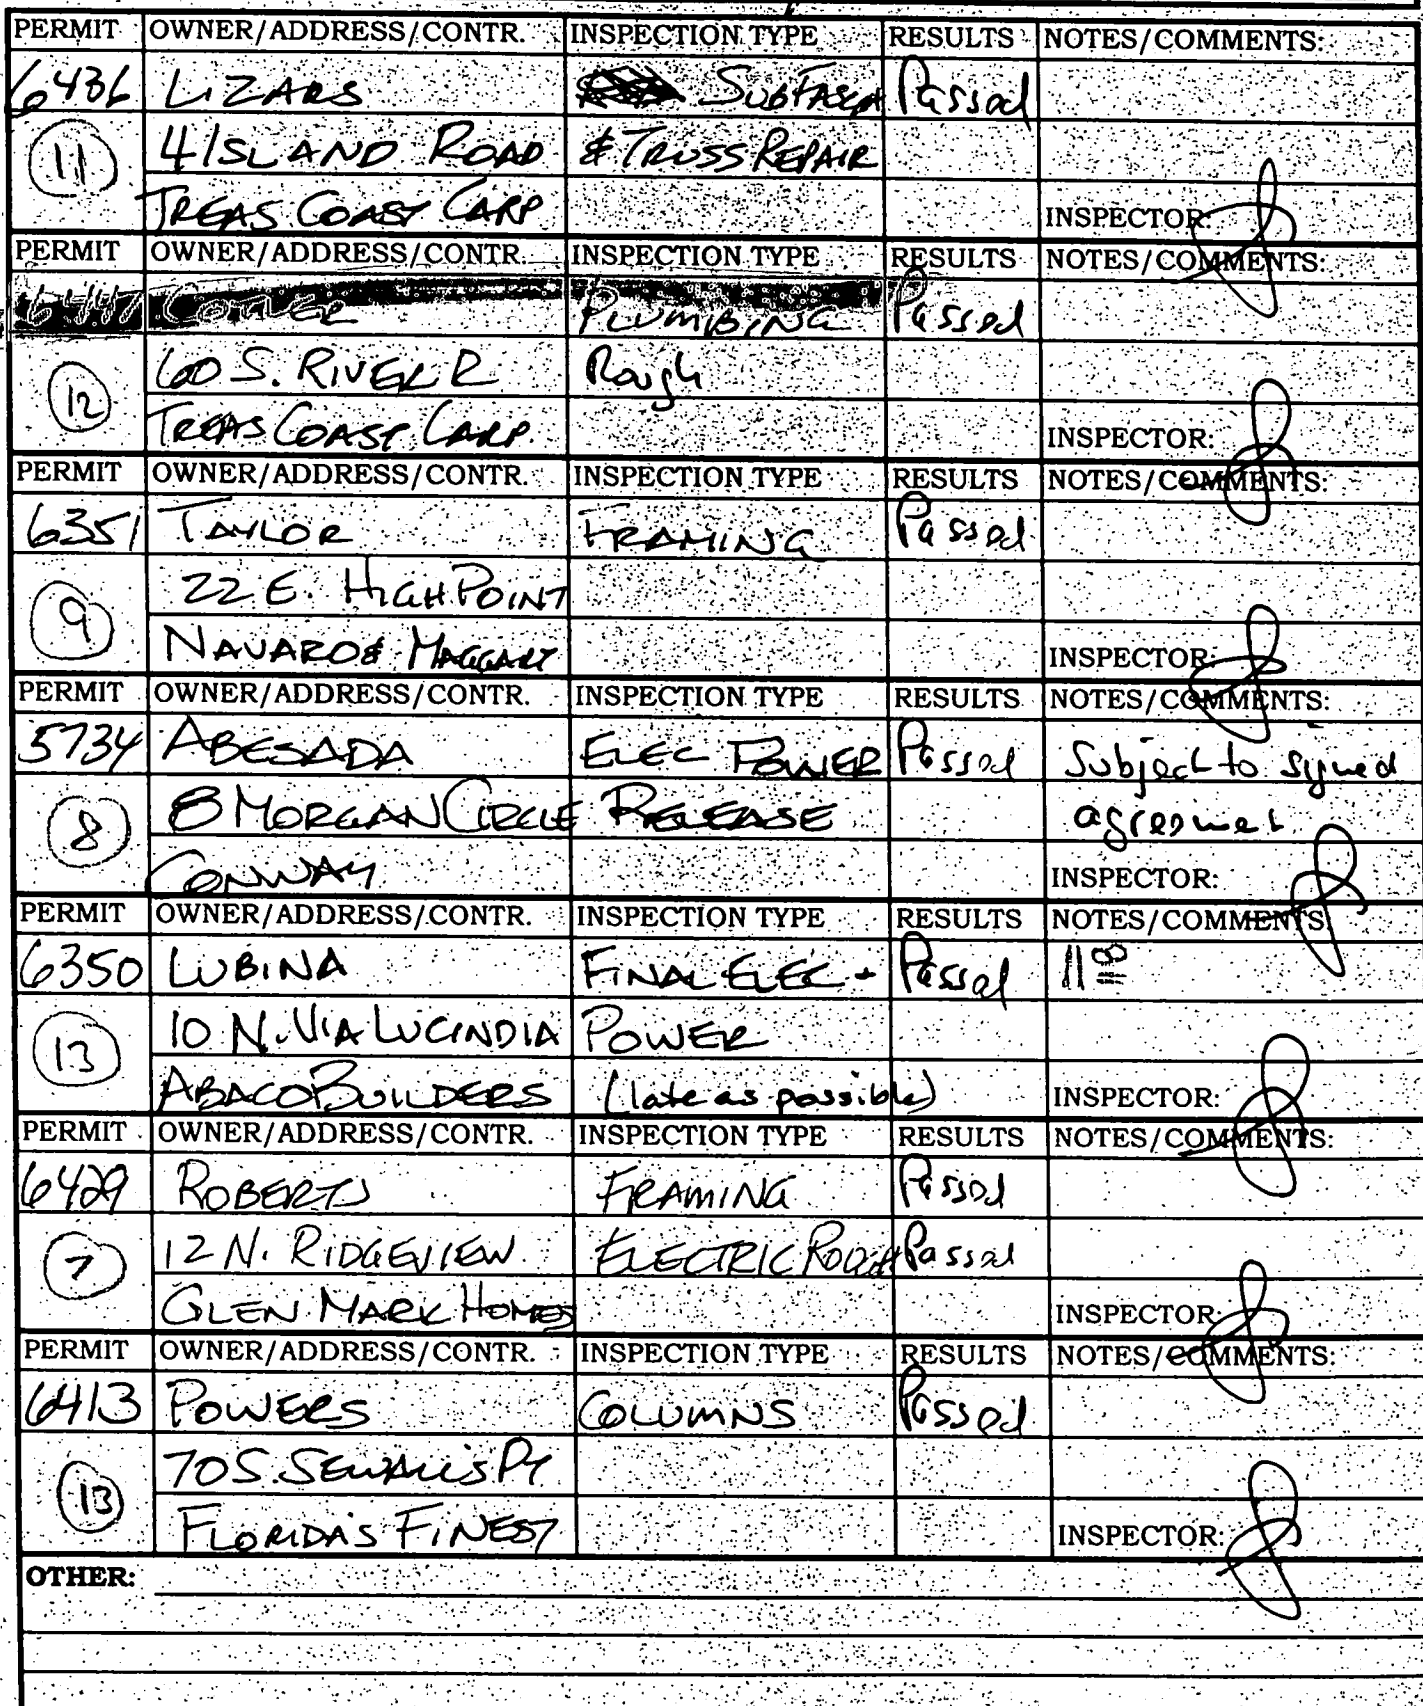 PERMIT OWNER/ADDRESS/CONTR. INSPECTION TYPE RESULTS NOTES/COMMENTS:
6436 LIZARS SUBFASCIA Passed
11 4 ISLAND ROAD & TRUSS REPAIR
TREAS COAST CARP INSPECTOR:
PERMIT OWNER/ADDRESS/CONTR. INSPECTION TYPE RESULTS NOTES/COMMENTS:
PLUMBING Passed
12 60 S. RIVER R Rough
TREAS COAST CARP. INSPECTOR:
PERMIT OWNER/ADDRESS/CONTR. INSPECTION TYPE RESULTS NOTES/COMMENTS:
6351 TAYLOR FRAMING Passed
9 22 E. HIGH POINT
NAVARO & MAGGART INSPECTOR:
PERMIT OWNER/ADDRESS/CONTR. INSPECTION TYPE RESULTS NOTES/COMMENTS:
5734 ABESADA ELEC POWER Passed Subject to signed
8 8 MORGAN CIRCLE RELEASE agreement
CONWAY INSPECTOR:
PERMIT OWNER/ADDRESS/CONTR. INSPECTION TYPE RESULTS NOTES/COMMENTS:
6350 LUBINA FINAL ELEC + Passed 11 00
13 10 N. VIA LUCINDIA POWER
ABACO BUILDERS (late as possible) INSPECTOR:
PERMIT OWNER/ADDRESS/CONTR. INSPECTION TYPE RESULTS NOTES/COMMENTS:
6429 ROBERTS FRAMING Passed
7 12 N. RIDGEVIEW ELECTRIC ROUGH Passed
GLEN MARK HOMES INSPECTOR:
PERMIT OWNER/ADDRESS/CONTR. INSPECTION TYPE RESULTS NOTES/COMMENTS:
6413 POWERS COLUMNS Passed
13 70 S. SEWALL'S PT
FLORIDA'S FINEST INSPECTOR:
OTHER: